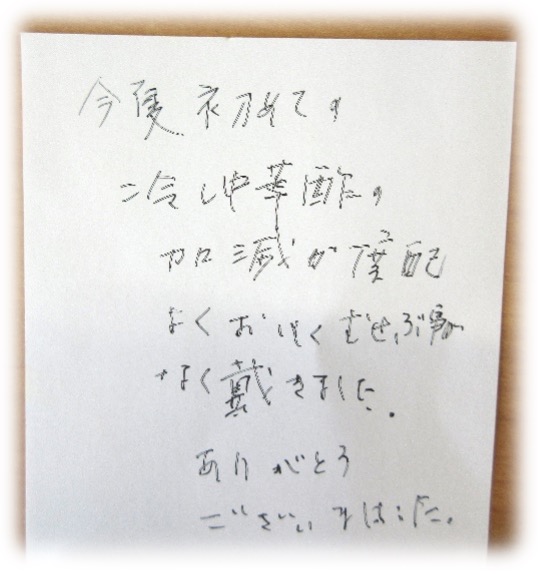 今夏初めての
冷し中華酢の
加減が僕配
よくおいくむせぶ事が
なく戴きました。
ありがとう
ございました。